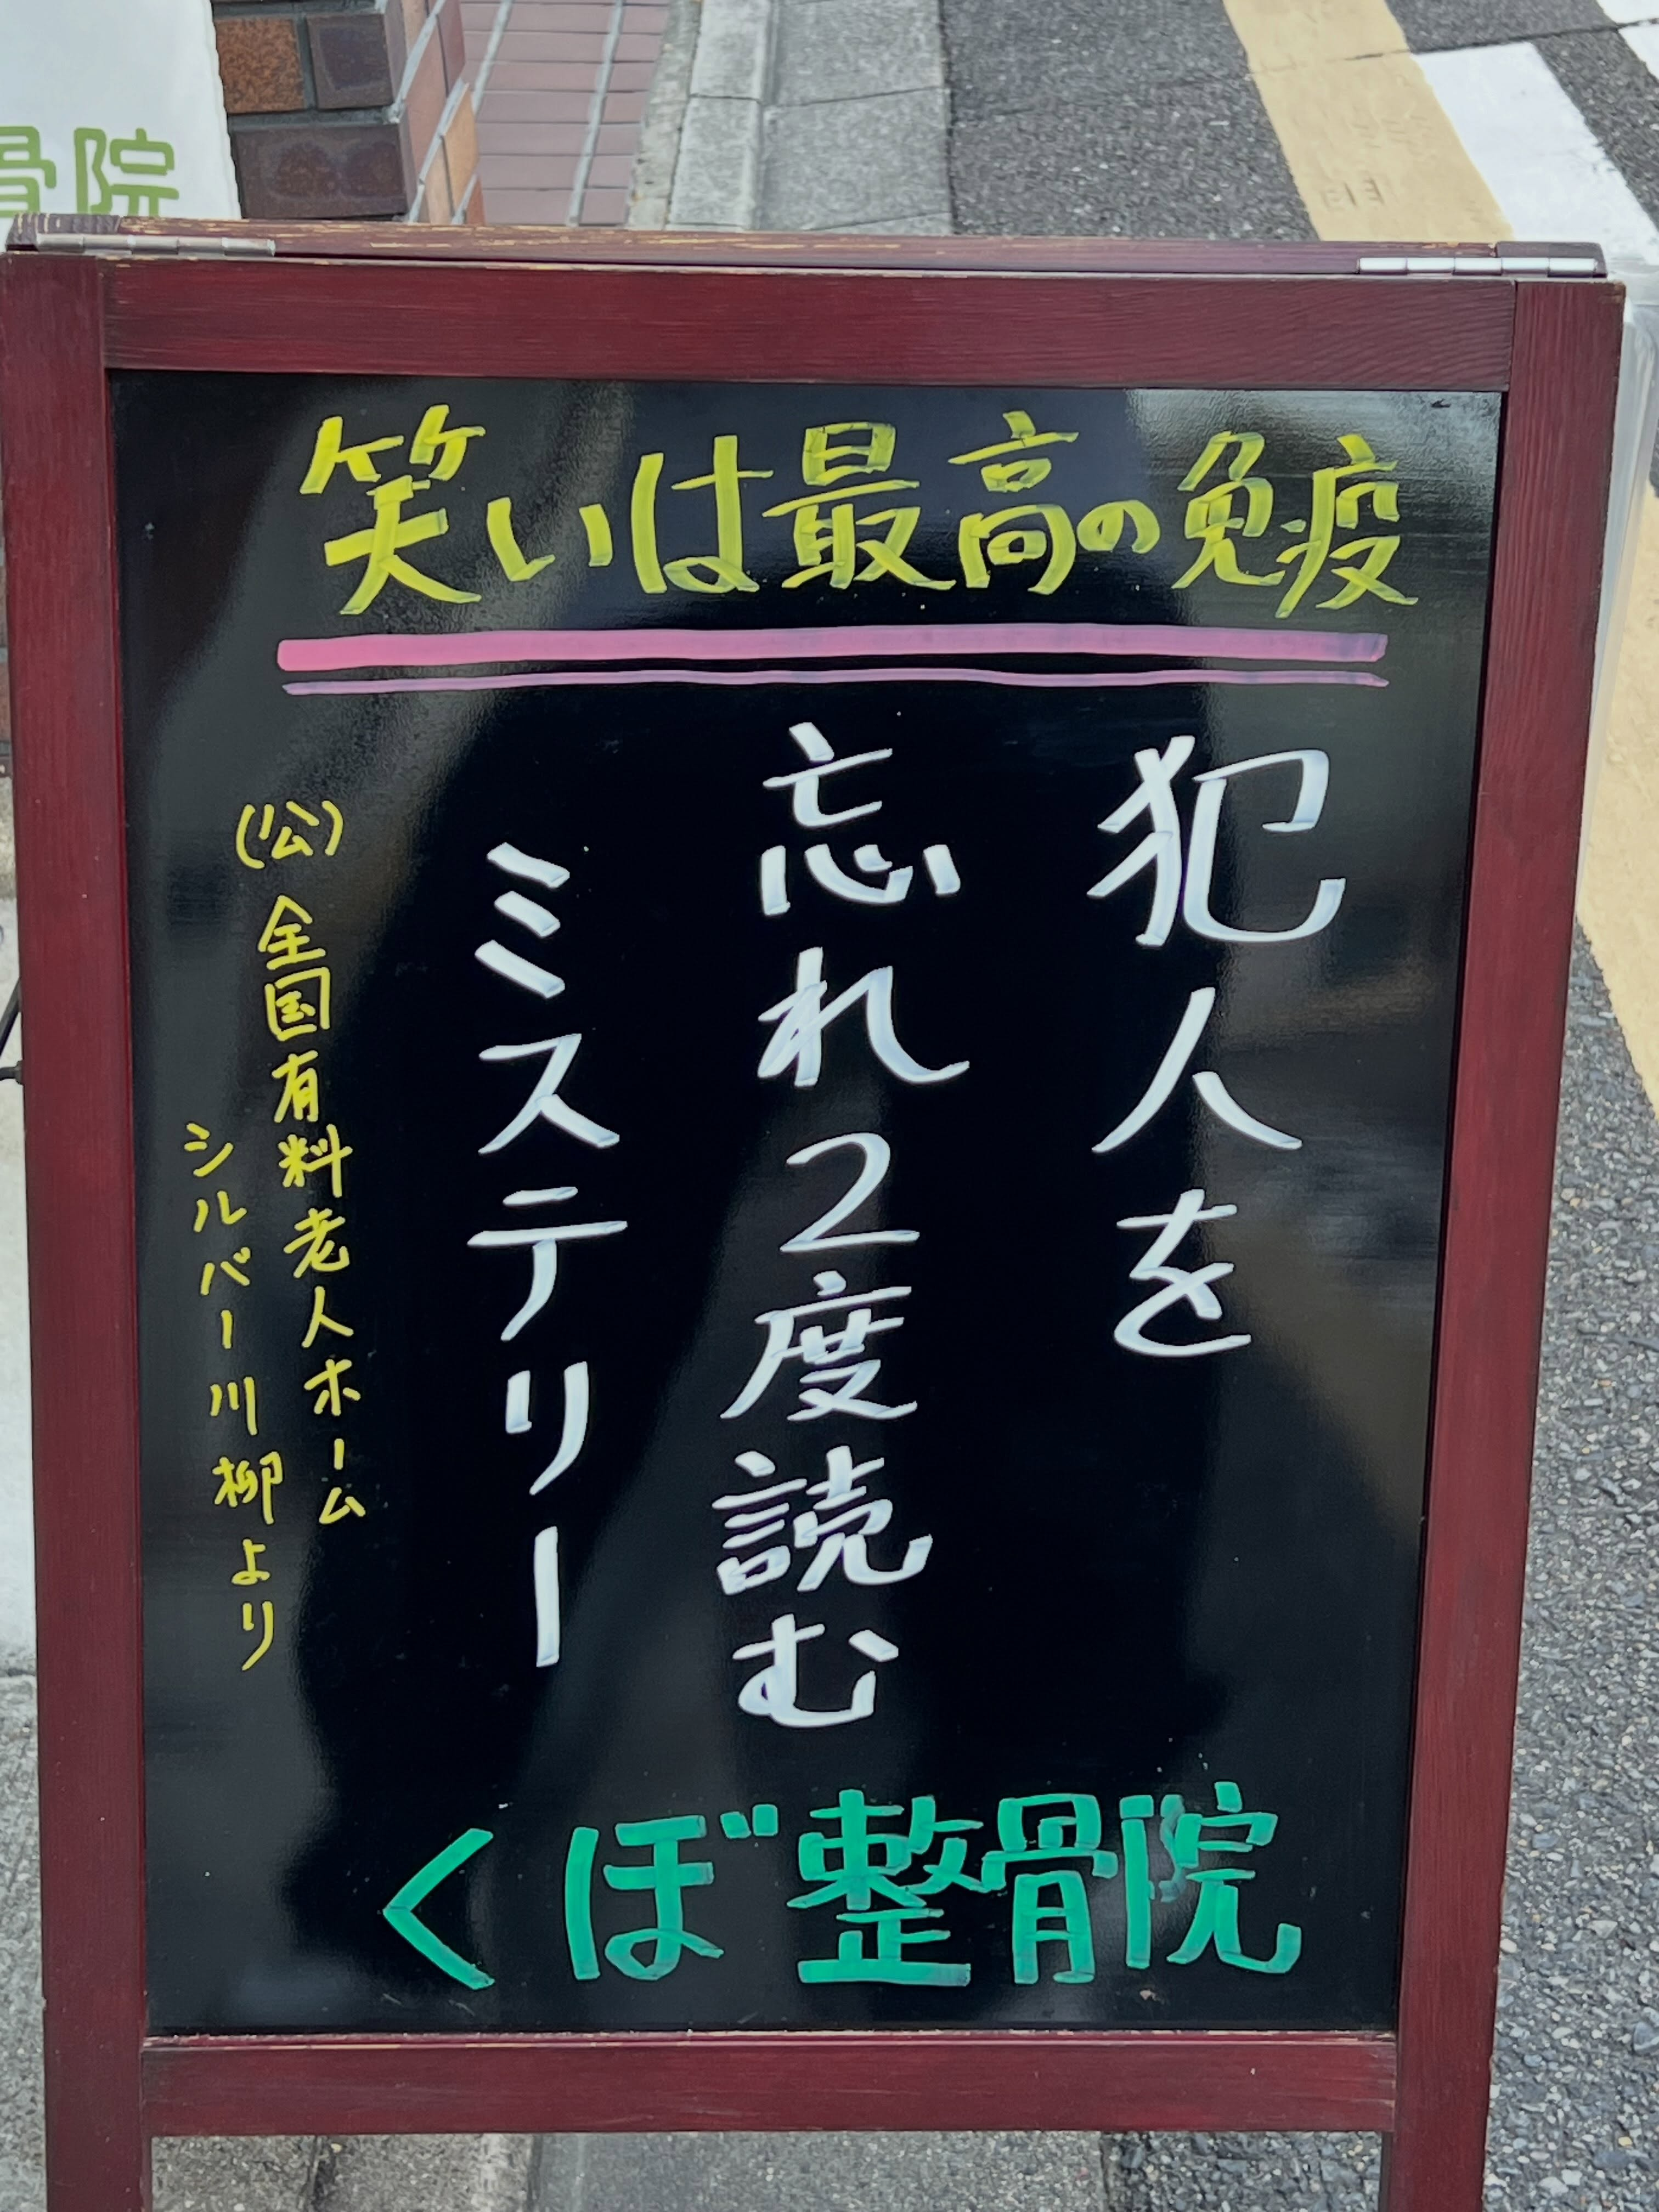 骨院
笑いは最高の免疫
犯人を
忘れ2度読む
ミステリー
(公)全国有料老人ホーム
シルバー川柳より
くぼ整骨院